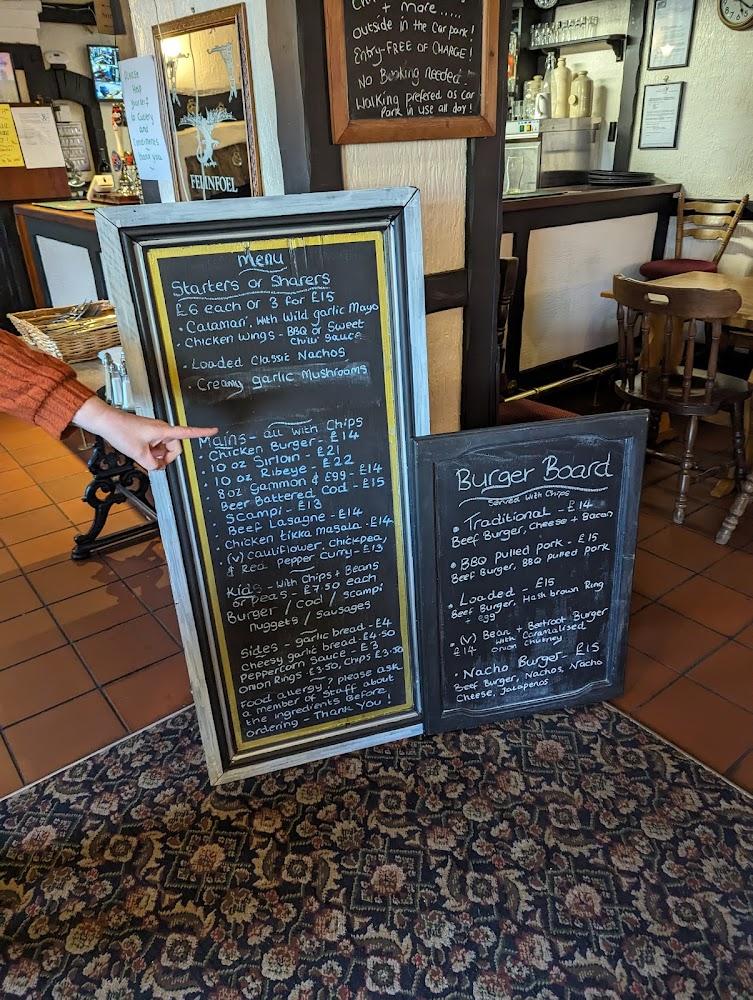 + more.....
outside in the car park!
Entry-FREE OF CHARGE!
NO Booking needed -
Walking prefered as car
Park in use all day!
Please
Help
yourself
to Cutlery
and
Condiments
thank
you
FELINFOEL
Menu
Starters or Sharers
£6 each or 3 for £15
• Calamari, with wild garlic Mayo
• Chicken Wings - BBQ or Sweet
Chilli Sauce
• Loaded Classic Nachos
• Creamy garlic Mushrooms
Mains - all with Chips
Chicken Burger - £14
• 10 oz Sirloin - £21
• 10 oz Ribeye - £22
8oz Gammon & £99 - £14
Beer Battered Cod - £15
• Scampi - £13
Beef Lasagne - £14
• Chicken tikka masala - £14
• (v) Cauliflower, Chickpea,
& Red Pepper Curry - £13
Kids - with Chips + Beans
or Peas - £7.50 each
Burger / Cod / Scampi
nuggets / Sausages
Sides - garlic bread - £4
Cheesy garlic bread - £4.50
Peppercorn Sauce - £3
Onion Rings - £3.50, Chips £3.50
Food allergy? please ask
a member of Staff about
the ingredients Before
ordering - Thank You!
Burger Board
Served with Chips
• Traditional - £14
Beef Burger, Cheese + Bacon
• BBQ pulled pork - £15
Beef Burger, BBQ pulled pork
• Loaded - £15
Beef Burger, Hash brown Ring
+ egg
• (v) Bean + Beetroot Burger
with Caramalised
£14 onion Chutney
• Nacho Burger - £15
Beef Burger, Nachos, Nacho
Cheese, Jalapenos